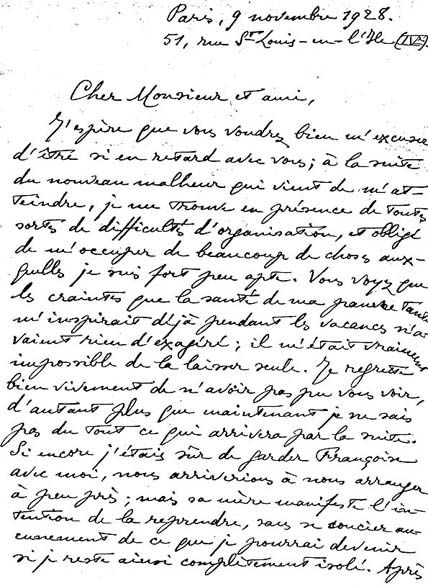 Paris, 9 novembre 1928.
51, rue St Louis-en-l'Ile (IVe).
Cher Monsieur et ami,
J'espère que vous voudrez bien m'excuser
d'être si en retard avec vous; à la suite
du nouveau malheur qui vient de m'at-
teindre, je me trouve en présence de toutes
sortes de difficultés d'organisation, et obligé
de m'occuper de beaucoup de choses aux-
quelles je suis fort peu apte. Vous voyez que
les craintes que la santé de ma pauvre tante
m'inspirait déjà pendant les vacances n'a-
vaient rien d'exagéré; il m'était vraiment
impossible de la laisser seule. Je regrette
bien vivement de n'avoir pas pu vous voir,
d'autant plus que maintenant je ne sais
pas du tout ce qui arrivera par la suite.
Si encore j'étais sûr de garder Françoise
avec moi, nous arriverions à nous arranger
à peu près; mais sa mère manifeste l'in-
tention de la reprendre, sans se soucier au-
cunement de ce que je pourrai devenir
si je reste ainsi complètement isolé. Après